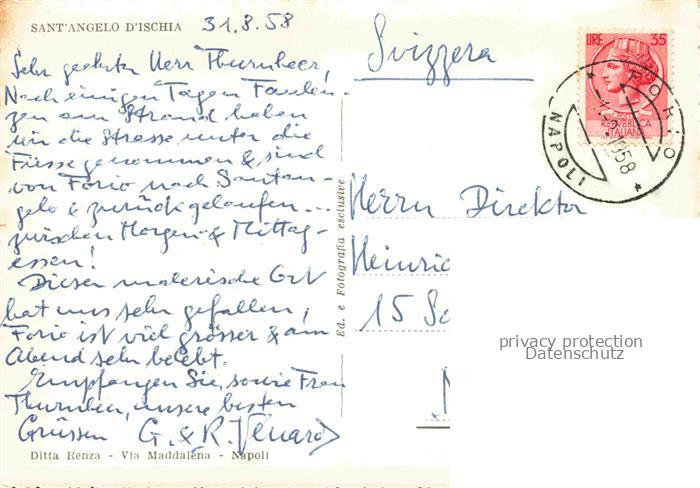 SANT'ANGELO D'ISCHIA 31.8.58
Sehr geehrter Herr Thurnheer,
Nach einigen Tagen Faulen-
zen am Strand haben
wir die Strasse unter die
Füsse genommen & sind
von Forio nach Santan-
gelo & zurück gelaufen...
zwischen Morgen- & Mittag-
essen!
Dieser malerische Ort
hat uns sehr gefallen,
Forio ist viel grösser & am
Abend sehr belebt.
Empfangen Sie, sowie Frau
Thurnheer, unsere besten
Grüssen G. & R.
Ditta Renza - Via Maddalena - Napoli
Ed. e Fotografia esclusive
Svizzera
LIRE 35
REPVBBLICA
ITALIANA
FORIO
1958
NAPOLI
Herrn Direktor
Heinric
15 Sc
privacy protection
Datenschutz